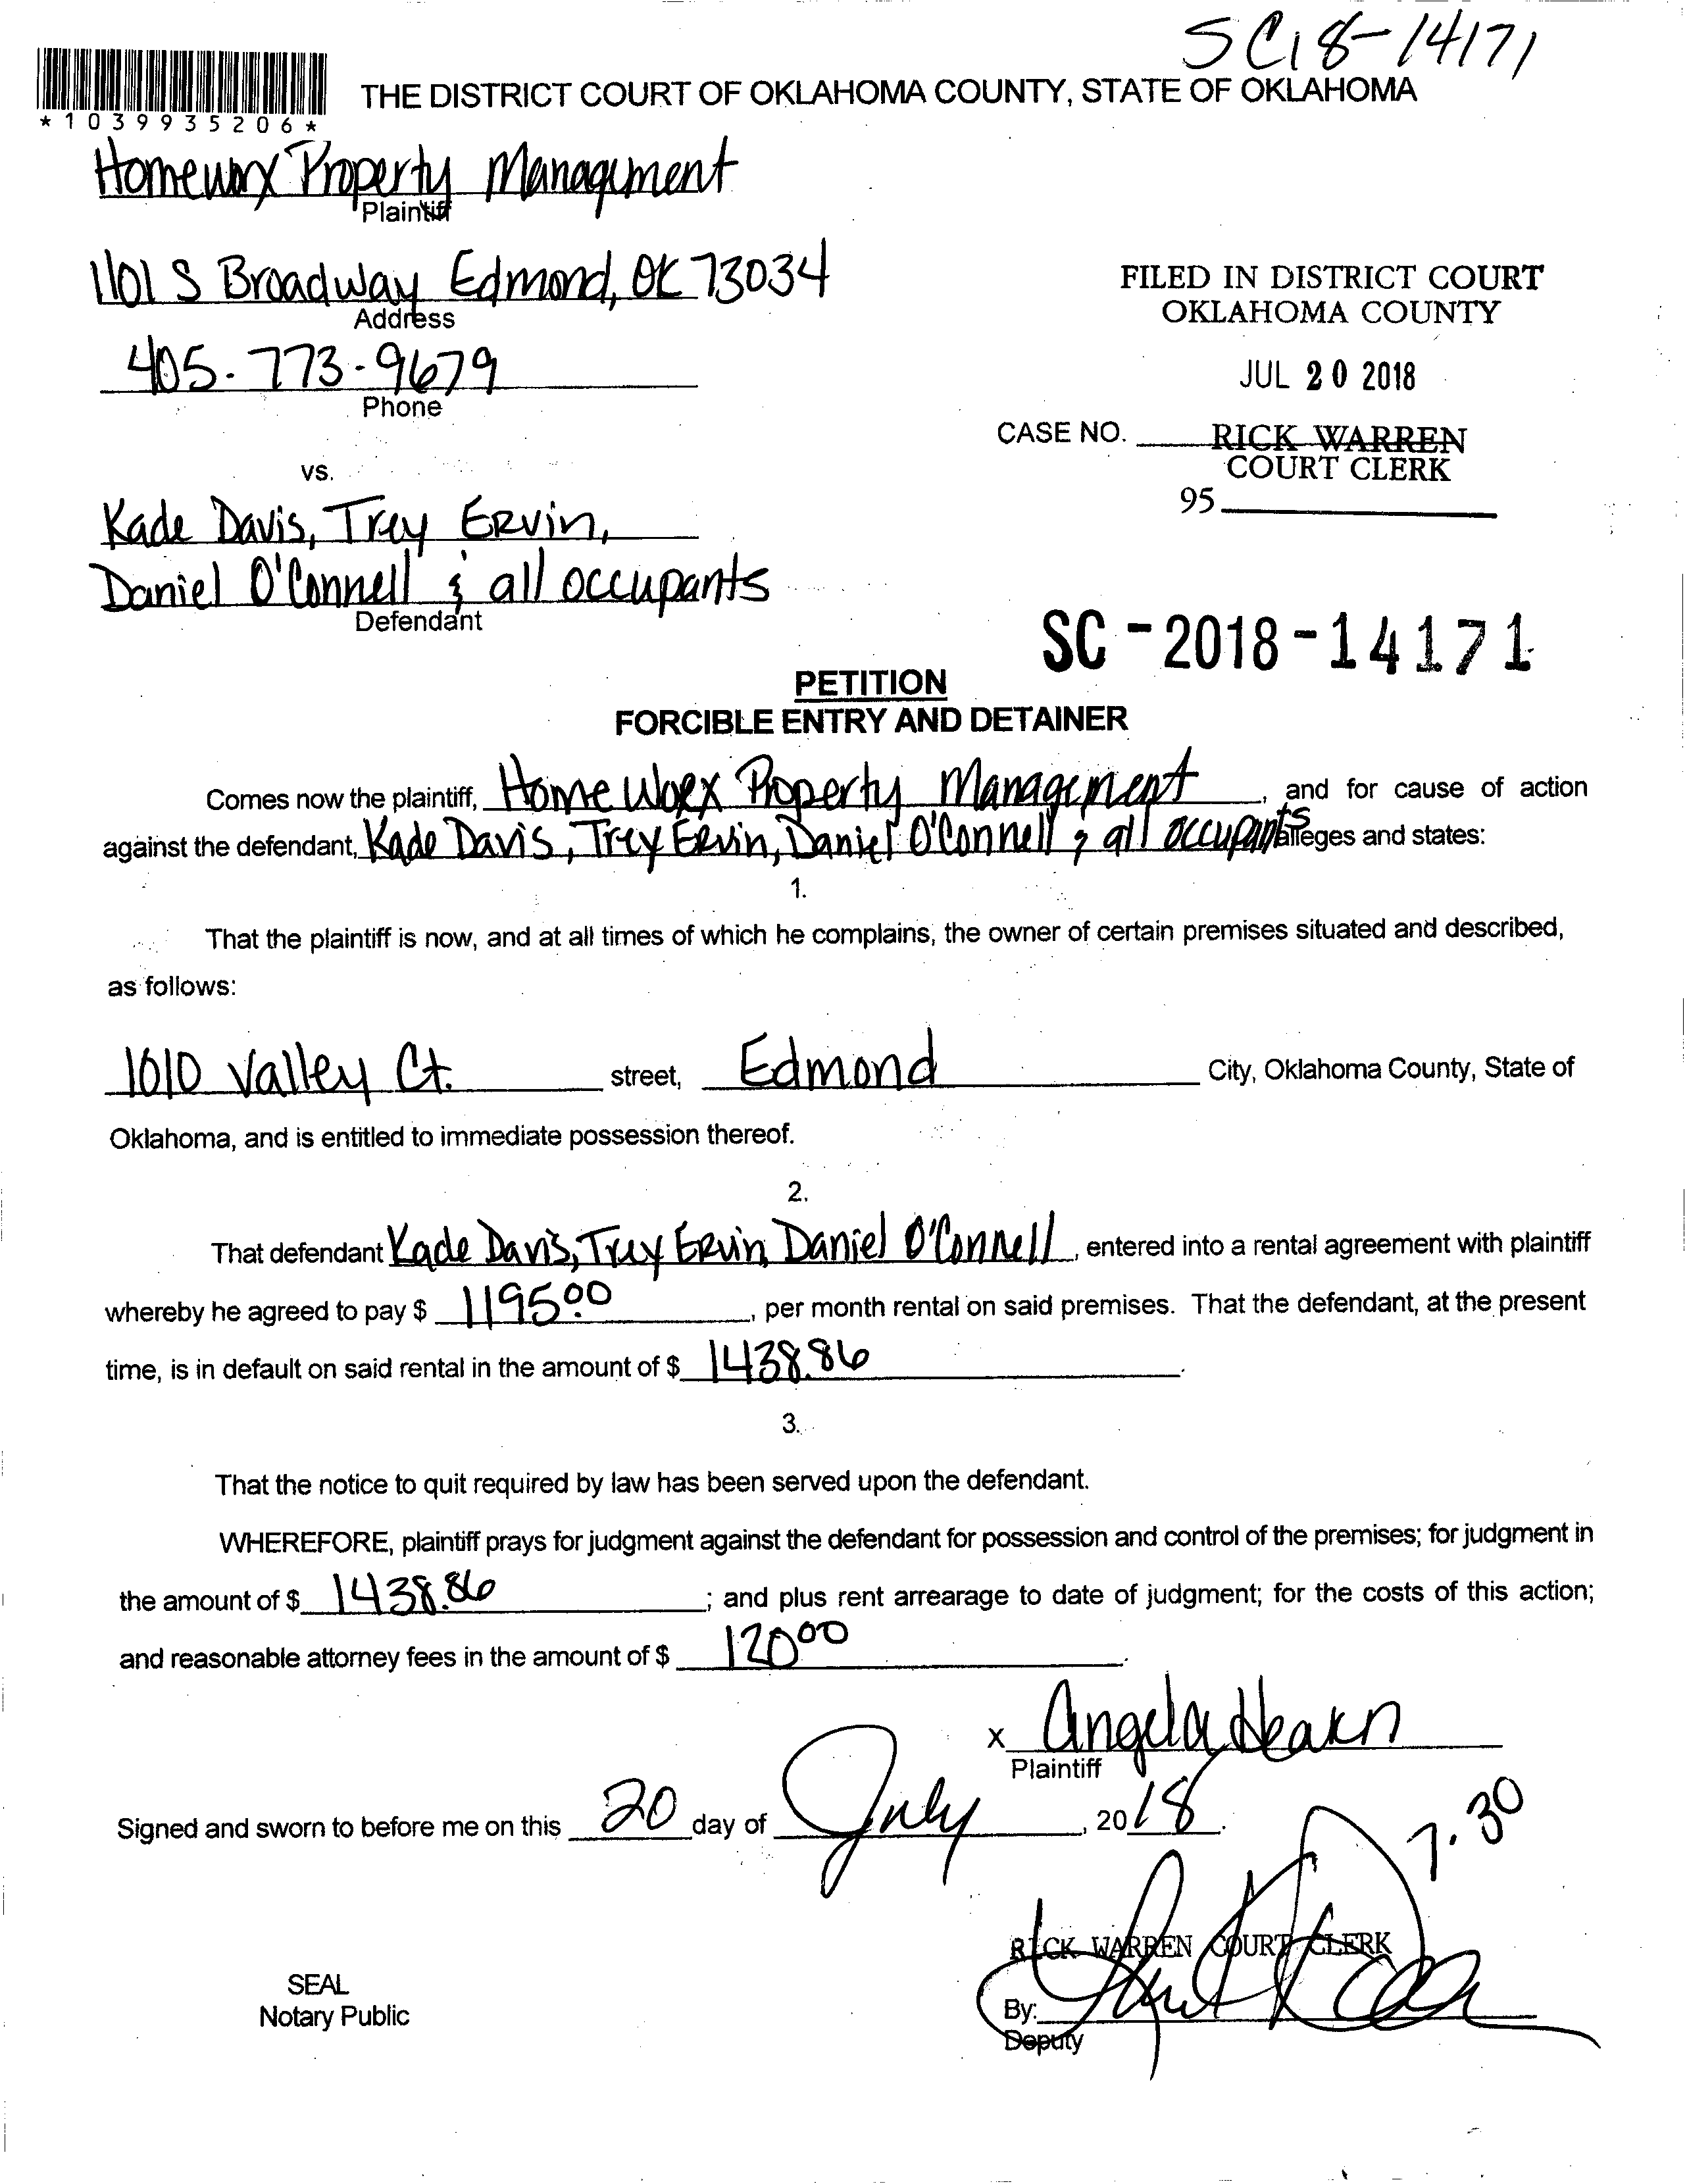 SC18-14171
THE DISTRICT COURT OF OKLAHOMA COUNTY, STATE OF OKLAHOMA
*1039935206*
Homeworx Property Management
Plaintiff
1101 S Broadway Edmond, OK 73034
Address
405-773-9679
Phone
FILED IN DISTRICT COURT
OKLAHOMA COUNTY
JUL 20 2018
CASE NO. RICK WARREN
COURT CLERK
95
vs.
Kade Davis, Trey Ervin,
Daniel O'Connell & all occupants
Defendant
SC-2018-14171
PETITION
FORCIBLE ENTRY AND DETAINER
Comes now the plaintiff, Homeworx Property Management, and for cause of action
against the defendant, Kade Davis, Trey Ervin, Daniel O'Connell & all occupants alleges and states:
1.
That the plaintiff is now, and at all times of which he complains, the owner of certain premises situated and described,
as follows:
1010 Valley Ct. street, Edmond City, Oklahoma County, State of
Oklahoma, and is entitled to immediate possession thereof.
2.
That defendant Kade Davis, Trey Ervin, Daniel O'Connell, entered into a rental agreement with plaintiff
whereby he agreed to pay $ 1195.00, per month rental on said premises. That the defendant, at the present
time, is in default on said rental in the amount of $ 1438.86.
3.
That the notice to quit required by law has been served upon the defendant.
WHEREFORE, plaintiff prays for judgment against the defendant for possession and control of the premises; for judgment in
the amount of $ 1438.86; and plus rent arrearage to date of judgment; for the costs of this action;
and reasonable attorney fees in the amount of $ 120.00.
x Angela Hearn
Plaintiff
Signed and sworn to before me on this 20 day of July, 2018.
7.30
RICK WARREN COURT CLERK
SEAL
Notary Public
By:
Deputy